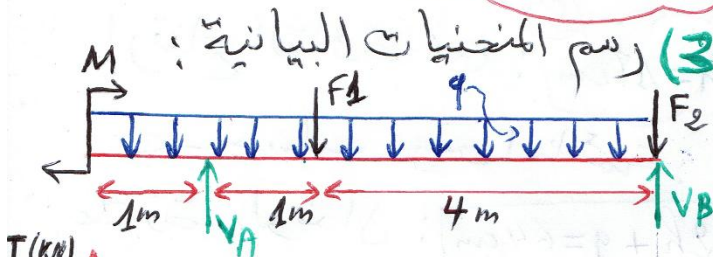 3) رسم المنحنيات البيانية :
M F1 q F2
1m 1m 4m
VA VB
T(KN)